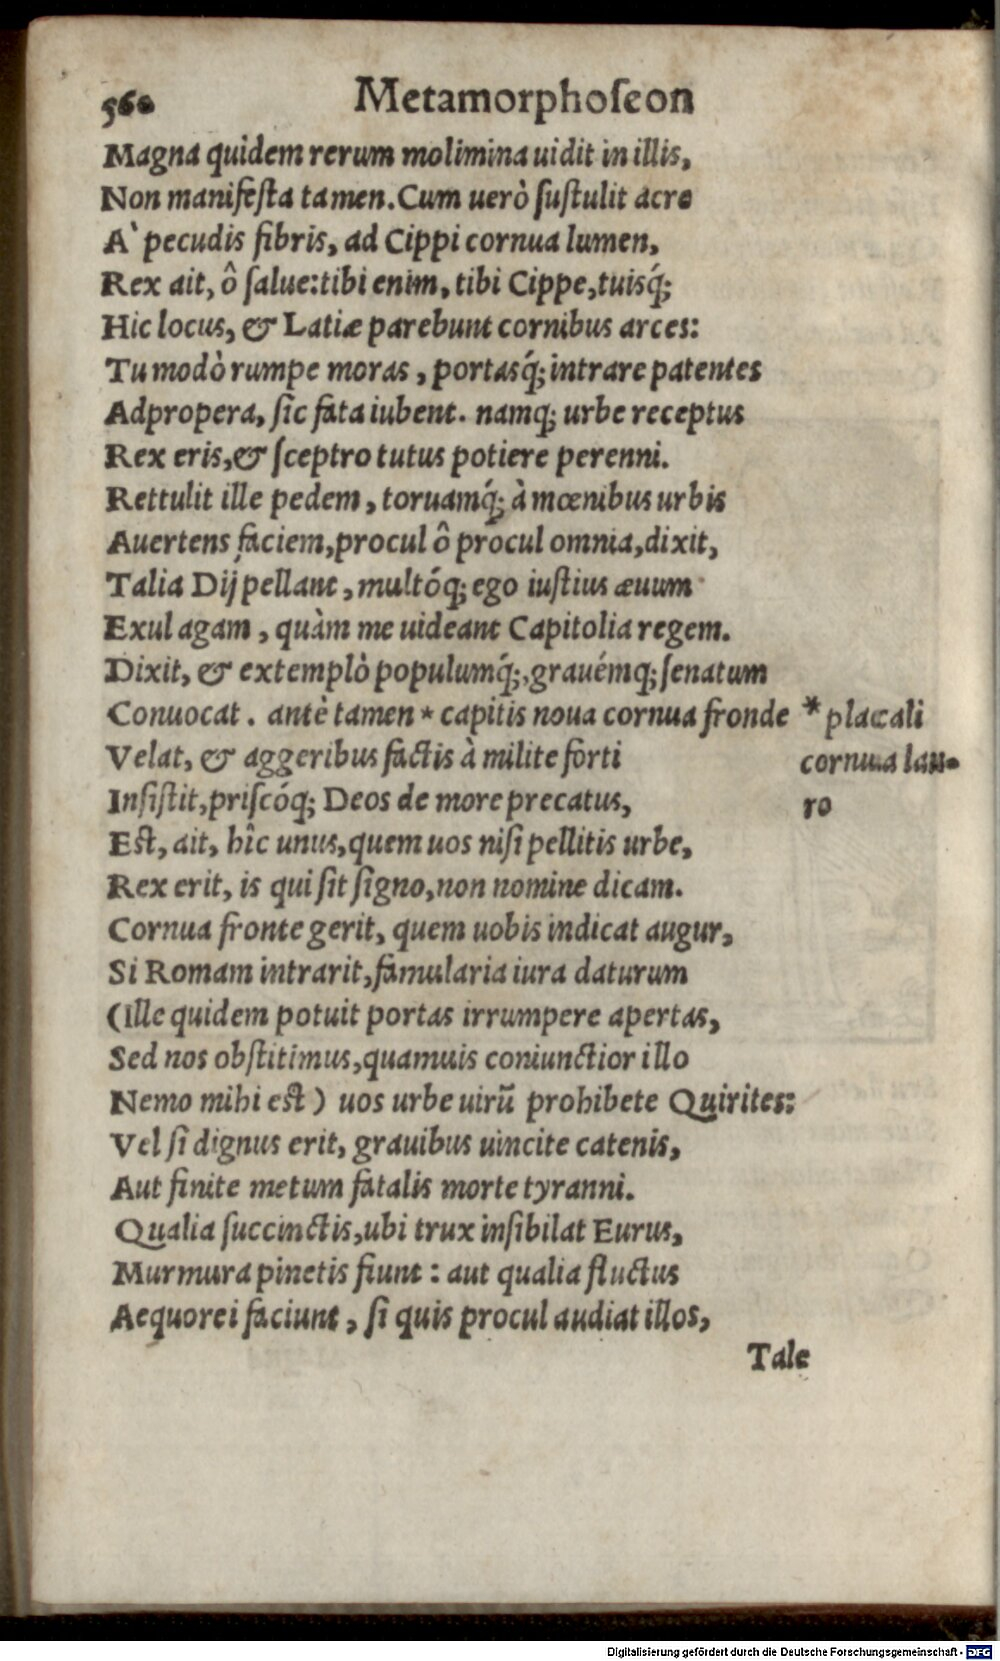 560 Metamorphoſeon
Magna quidem rerum molimina uidit in illis,
Non manifeſta tamen. Cum uerò ſuſtulit acre
A` pecudis fibris, ad Cippi cornua lumen,
Rex ait, ô ſalue: tibi enim, tibi Cippe, tuisq́;
Hic locus, & Latiæ parebunt cornibus arces:
Tu modò rumpe moras, portasq́; intrare patentes
Adpropera, ſic fata iubent. namq; urbe receptus
Rex eris, & ſceptro tutus potiere perenni.
Rettulit ille pedem, toruamq́; à mœnibus urbis
Auertens faciem, procul ô procul omnia, dixit,
Talia Dij pellant, multóq; ego iuſtius æuum
Exul agam, quàm me uideant Capitolia regem.
Dixit, & extemplò populumq́;, grauémq; ſenatum
Conuocat. antè tamen * capitis noua cornua fronde * placali
Velat, & aggeribus factis à milite forti cornua lau-
Inſiſtit, priſcóq; Deos de more precatus, ro
Eſt, ait, hîc unus, quem uos niſi pellitis urbe,
Rex erit, is qui ſit ſigno, non nomine dicam.
Cornua fronte gerit, quem uobis indicat augur,
Si Romam intrarit, famularia iura daturum
(Ille quidem potuit portas irrumpere apertas,
Sed nos obſtitimus, quamuis coniunctior illo
Nemo mihi eſt) uos urbe uirũ prohibete Quirites:
Vel ſi dignus erit, grauibus uincite catenis,
Aut finite metum fatalis morte tyranni.
Qualia ſuccinctis, ubi trux inſibilat Eurus,
Murmura pinetis fiunt: aut qualia fluctus
Aequorei faciunt, ſi quis procul audiat illos,
Tale
Digitalisierung gefördert durch die Deutsche Forschungsgemeinschaft - DFG